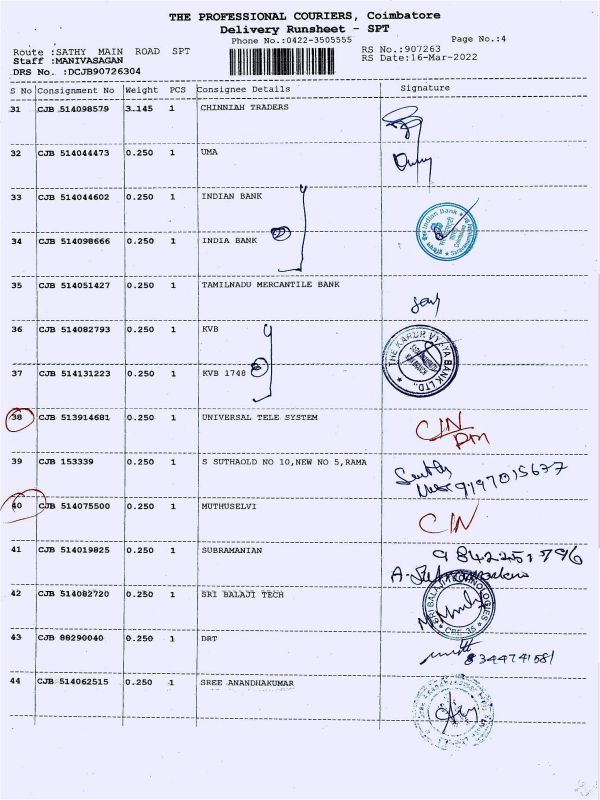 THE PROFESSIONAL COURIERS, Coimbatore
Delivery Runsheet - SPT
Phone No.:0422-3505555 Page No.:4
Route :SATHY MAIN ROAD SPT RS No.:907263
Staff :MANIVASAGAN RS Date:16-Mar-2022
DRS No. :DCJB90726304
S No Consignment No Weight PCS Consignee Details Signature
31 CJB 514098579 3.145 1 CHINNIAH TRADERS
32 CJB 514044473 0.250 1 UMA
33 CJB 514044602 0.250 1 INDIAN BANK
34 CJB 514098666 0.250 1 INDIA BANK
35 CJB 514051427 0.250 1 TAMILNADU MERCANTILE BANK
36 CJB 514082793 0.250 1 KVB
THE KARUR VYSYA BANK LTD.,
37 CJB 514131223 0.250 1 KVB 1748
38 CJB 513914681 0.250 1 UNIVERSAL TELE SYSTEM C/N
39 CJB 153339 0.250 1 S SUTHAOLD NO 10,NEW NO 5,RAMA
40 CJB 514075500 0.250 1 MUTHUSELVI C/N
41 CJB 514019825 0.250 1 SUBRAMANIAN
42 CJB 514082720 0.250 1 SRI BALAJI TECH
SRI BALAJI TECHNOLOGIES
CBE-35
43 CJB 88290040 0.250 1 DRT
44 CJB 514062515 0.250 1 SREE ANANDHAKUMAR